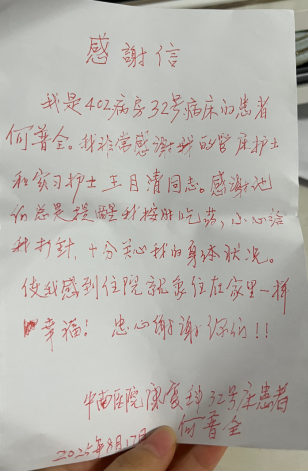 感謝信
我是402病房32号病床的患者
何普全。我非常感谢我的管床护士
和实习护士王月清同志。感谢她
们总是提醒我按时吃药，小心给
我打針，十分关心我的身体状况。
使我感到住院就象住在家里一样
幸福！忠心谢谢你们!!!
中南医院康复科32号床患者
2025年8月17日 何普全